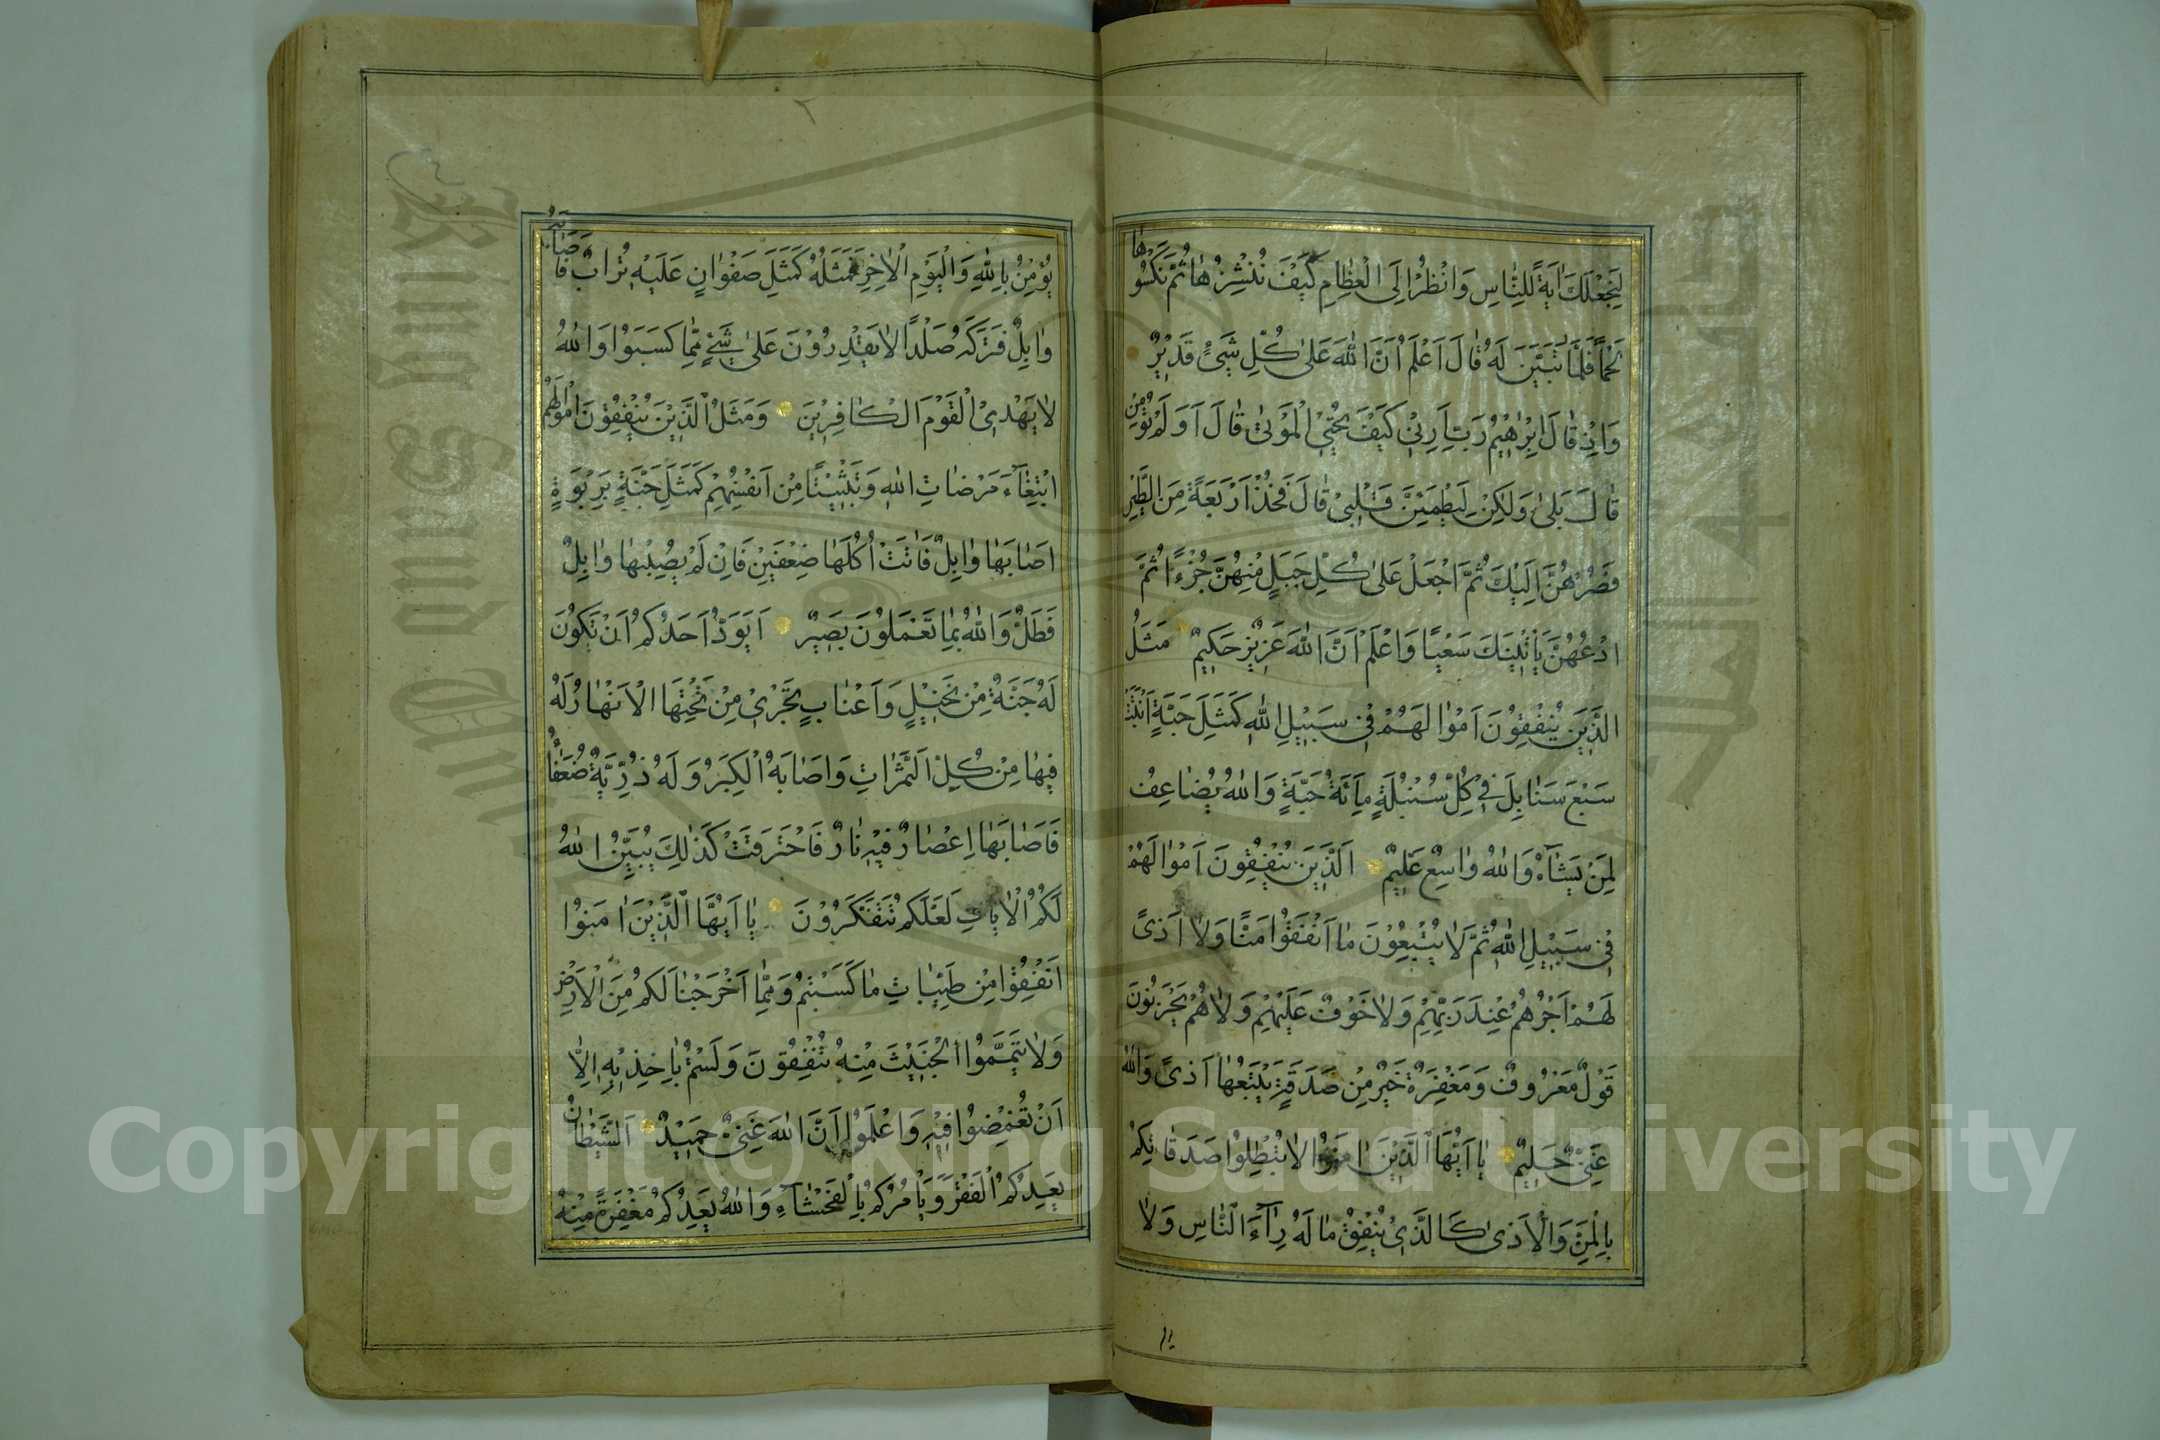 لِنَجْعَلَكَ اٰيَةً لِلنَّاسِ وَانْظُرْ اِلَى الْعِظَامِ كَيْفَ نُنْشِزُهَا ثُمَّ نَكْسُوهَا
لَحْمًا فَلَمَّا تَبَيَّنَ لَهُ قَالَ اَعْلَمُ اَنَّ اللّٰهَ عَلٰى كُلِّ شَيْءٍ قَدِيرٌ
وَاِذْ قَالَ اِبْرٰهِيمُ رَبِّ اَرِنِي كَيْفَ تُحْيِي الْمَوْتٰى قَالَ اَوَلَمْ تُؤْمِنْ
قَالَ بَلٰى وَلٰكِنْ لِيَطْمَئِنَّ قَلْبِي قَالَ فَخُذْ اَرْبَعَةً مِنَ الطَّيْرِ
فَصُرْهُنَّ اِلَيْكَ ثُمَّ اجْعَلْ عَلٰى كُلِّ جَبَلٍ مِنْهُنَّ جُزْءًا ثُمَّ
ادْعُهُنَّ يَأْتِينَكَ سَعْيًا وَاعْلَمْ اَنَّ اللّٰهَ عَزِيزٌ حَكِيمٌ مَثَلُ
الَّذِينَ يُنْفِقُونَ اَمْوَالَهُمْ فِي سَبِيلِ اللّٰهِ كَمَثَلِ حَبَّةٍ اَنْبَتَتْ
سَبْعَ سَنَابِلَ فِي كُلِّ سُنْبُلَةٍ مِائَةُ حَبَّةٍ وَاللّٰهُ يُضَاعِفُ
لِمَنْ يَشَآءُ وَاللّٰهُ وَاسِعٌ عَلِيمٌ اَلَّذِينَ يُنْفِقُونَ اَمْوَالَهُمْ
فِي سَبِيلِ اللّٰهِ ثُمَّ لَا يُتْبِعُونَ مَا اَنْفَقُوا مَنًّا وَلَا اَذًى
لَهُمْ اَجْرُهُمْ عِنْدَ رَبِّهِمْ وَلَا خَوْفٌ عَلَيْهِمْ وَلَا هُمْ يَحْزَنُونَ
قَوْلٌ مَعْرُوفٌ وَمَغْفِرَةٌ خَيْرٌ مِنْ صَدَقَةٍ يَتْبَعُهَا اَذًى وَاللّٰهُ
غَنِيٌّ حَلِيمٌ يَا اَيُّهَا الَّذِينَ اٰمَنُوا لَا تُبْطِلُوا صَدَقَاتِكُمْ
بِالْمَنِّ وَالْاَذٰى كَالَّذِي يُنْفِقُ مَالَهُ رِئَآءَ النَّاسِ وَلَا
يُؤْمِنُ بِاللّٰهِ وَالْيَوْمِ الْاٰخِرِ فَمَثَلُهُ كَمَثَلِ صَفْوَانٍ عَلَيْهِ تُرَابٌ فَاَصَابَهُ
وَابِلٌ فَتَرَكَهُ صَلْدًا لَا يَقْدِرُونَ عَلٰى شَيْءٍ مِمَّا كَسَبُوا وَاللّٰهُ
لَا يَهْدِي الْقَوْمَ الْكَافِرِينَ وَمَثَلُ الَّذِينَ يُنْفِقُونَ اَمْوَالَهُمُ
ابْتِغَآءَ مَرْضَاتِ اللّٰهِ وَتَثْبِيتًا مِنْ اَنْفُسِهِمْ كَمَثَلِ جَنَّةٍ بِرَبْوَةٍ
اَصَابَهَا وَابِلٌ فَاٰتَتْ اُكُلَهَا ضِعْفَيْنِ فَاِنْ لَمْ يُصِبْهَا وَابِلٌ
فَطَلٌّ وَاللّٰهُ بِمَا تَعْمَلُونَ بَصِيرٌ اَيَوَدُّ اَحَدُكُمْ اَنْ تَكُونَ
لَهُ جَنَّةٌ مِنْ نَخِيلٍ وَاَعْنَابٍ تَجْرِي مِنْ تَحْتِهَا الْاَنْهَارُ لَهُ
فِيهَا مِنْ كُلِّ الثَّمَرَاتِ وَاَصَابَهُ الْكِبَرُ وَلَهُ ذُرِّيَّةٌ ضُعَفَآءُ
فَاَصَابَهَا اِعْصَارٌ فِيهِ نَارٌ فَاحْتَرَقَتْ كَذٰلِكَ يُبَيِّنُ اللّٰهُ
لَكُمُ الْاٰيَاتِ لَعَلَّكُمْ تَتَفَكَّرُونَ يَا اَيُّهَا الَّذِينَ اٰمَنُوا
اَنْفِقُوا مِنْ طَيِّبَاتِ مَا كَسَبْتُمْ وَمِمَّا اَخْرَجْنَا لَكُمْ مِنَ الْاَرْضِ
وَلَا تَيَمَّمُوا الْخَبِيثَ مِنْهُ تُنْفِقُونَ وَلَسْتُمْ بِاٰخِذِيهِ اِلَّا
اَنْ تُغْمِضُوا فِيهِ وَاعْلَمُوا اَنَّ اللّٰهَ غَنِيٌّ حَمِيدٌ اَلشَّيْطَانُ
يَعِدُكُمُ الْفَقْرَ وَيَأْمُرُكُمْ بِالْفَحْشَآءِ وَاللّٰهُ يَعِدُكُمْ مَغْفِرَةً مِنْهُ
Copyright © King Saud University